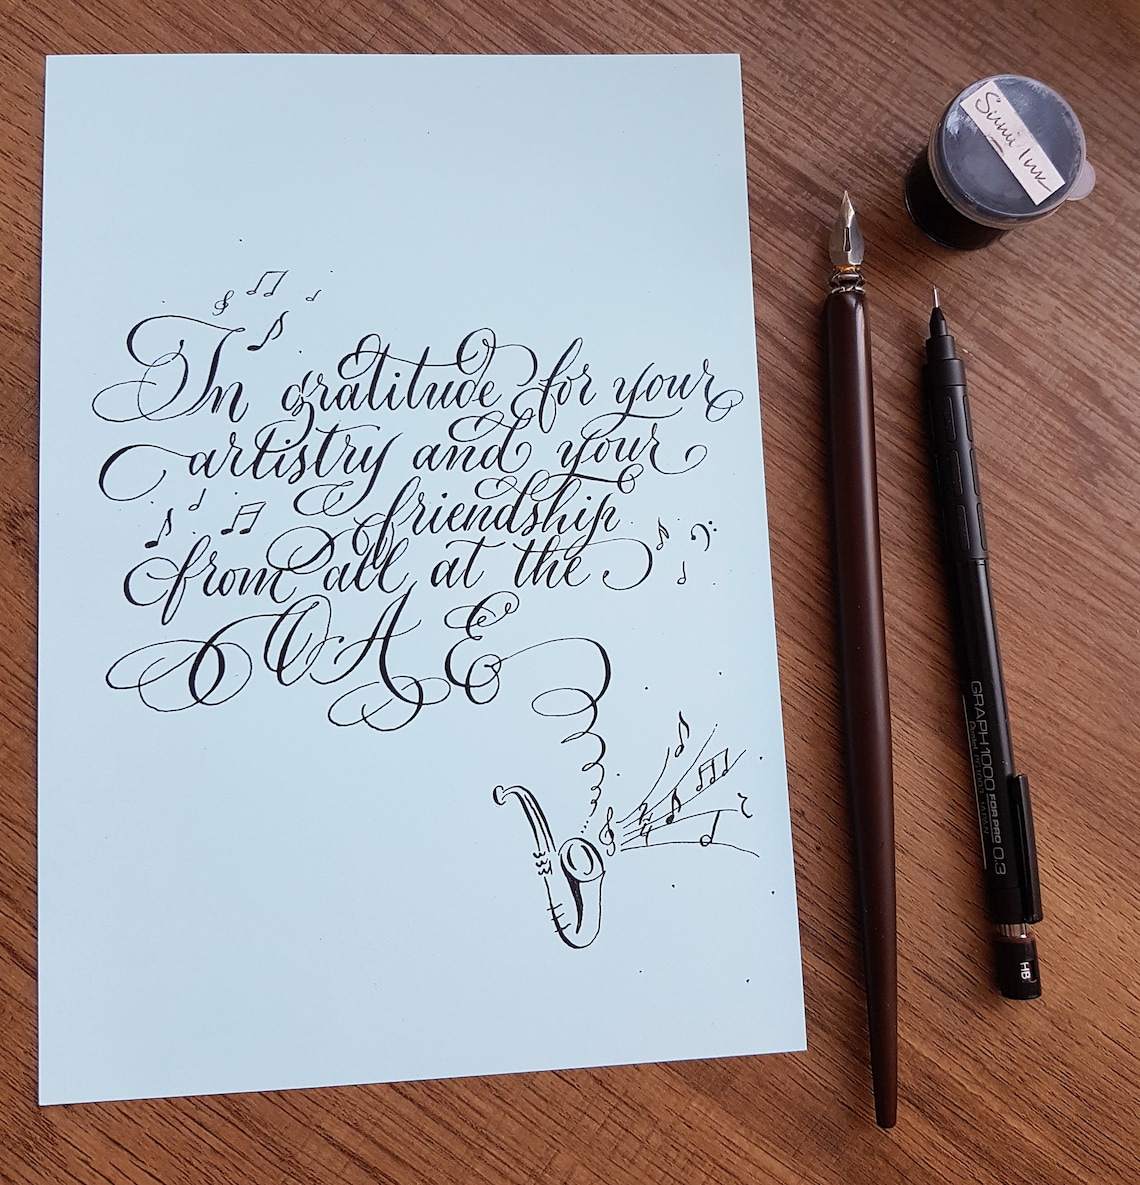 In gratitude for your
artistry and your
friendship
from all at the
OAE
Sumi Ink
GRAPH 1000 FOR PRO 0.3
Pentel PG1003 JAPAN
HB